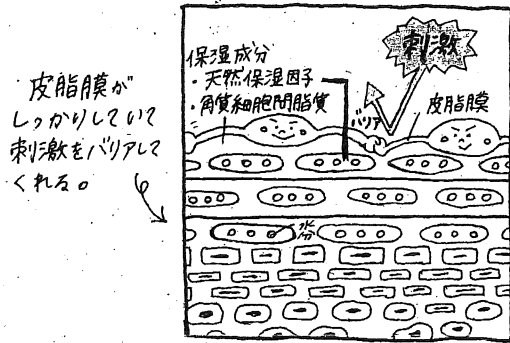 皮脂膜が
しっかりしていて
刺激をバリアして
くれる。
刺激
保湿成分
・天然保湿因子
・角質細胞間脂質
バリア
皮脂膜
水分